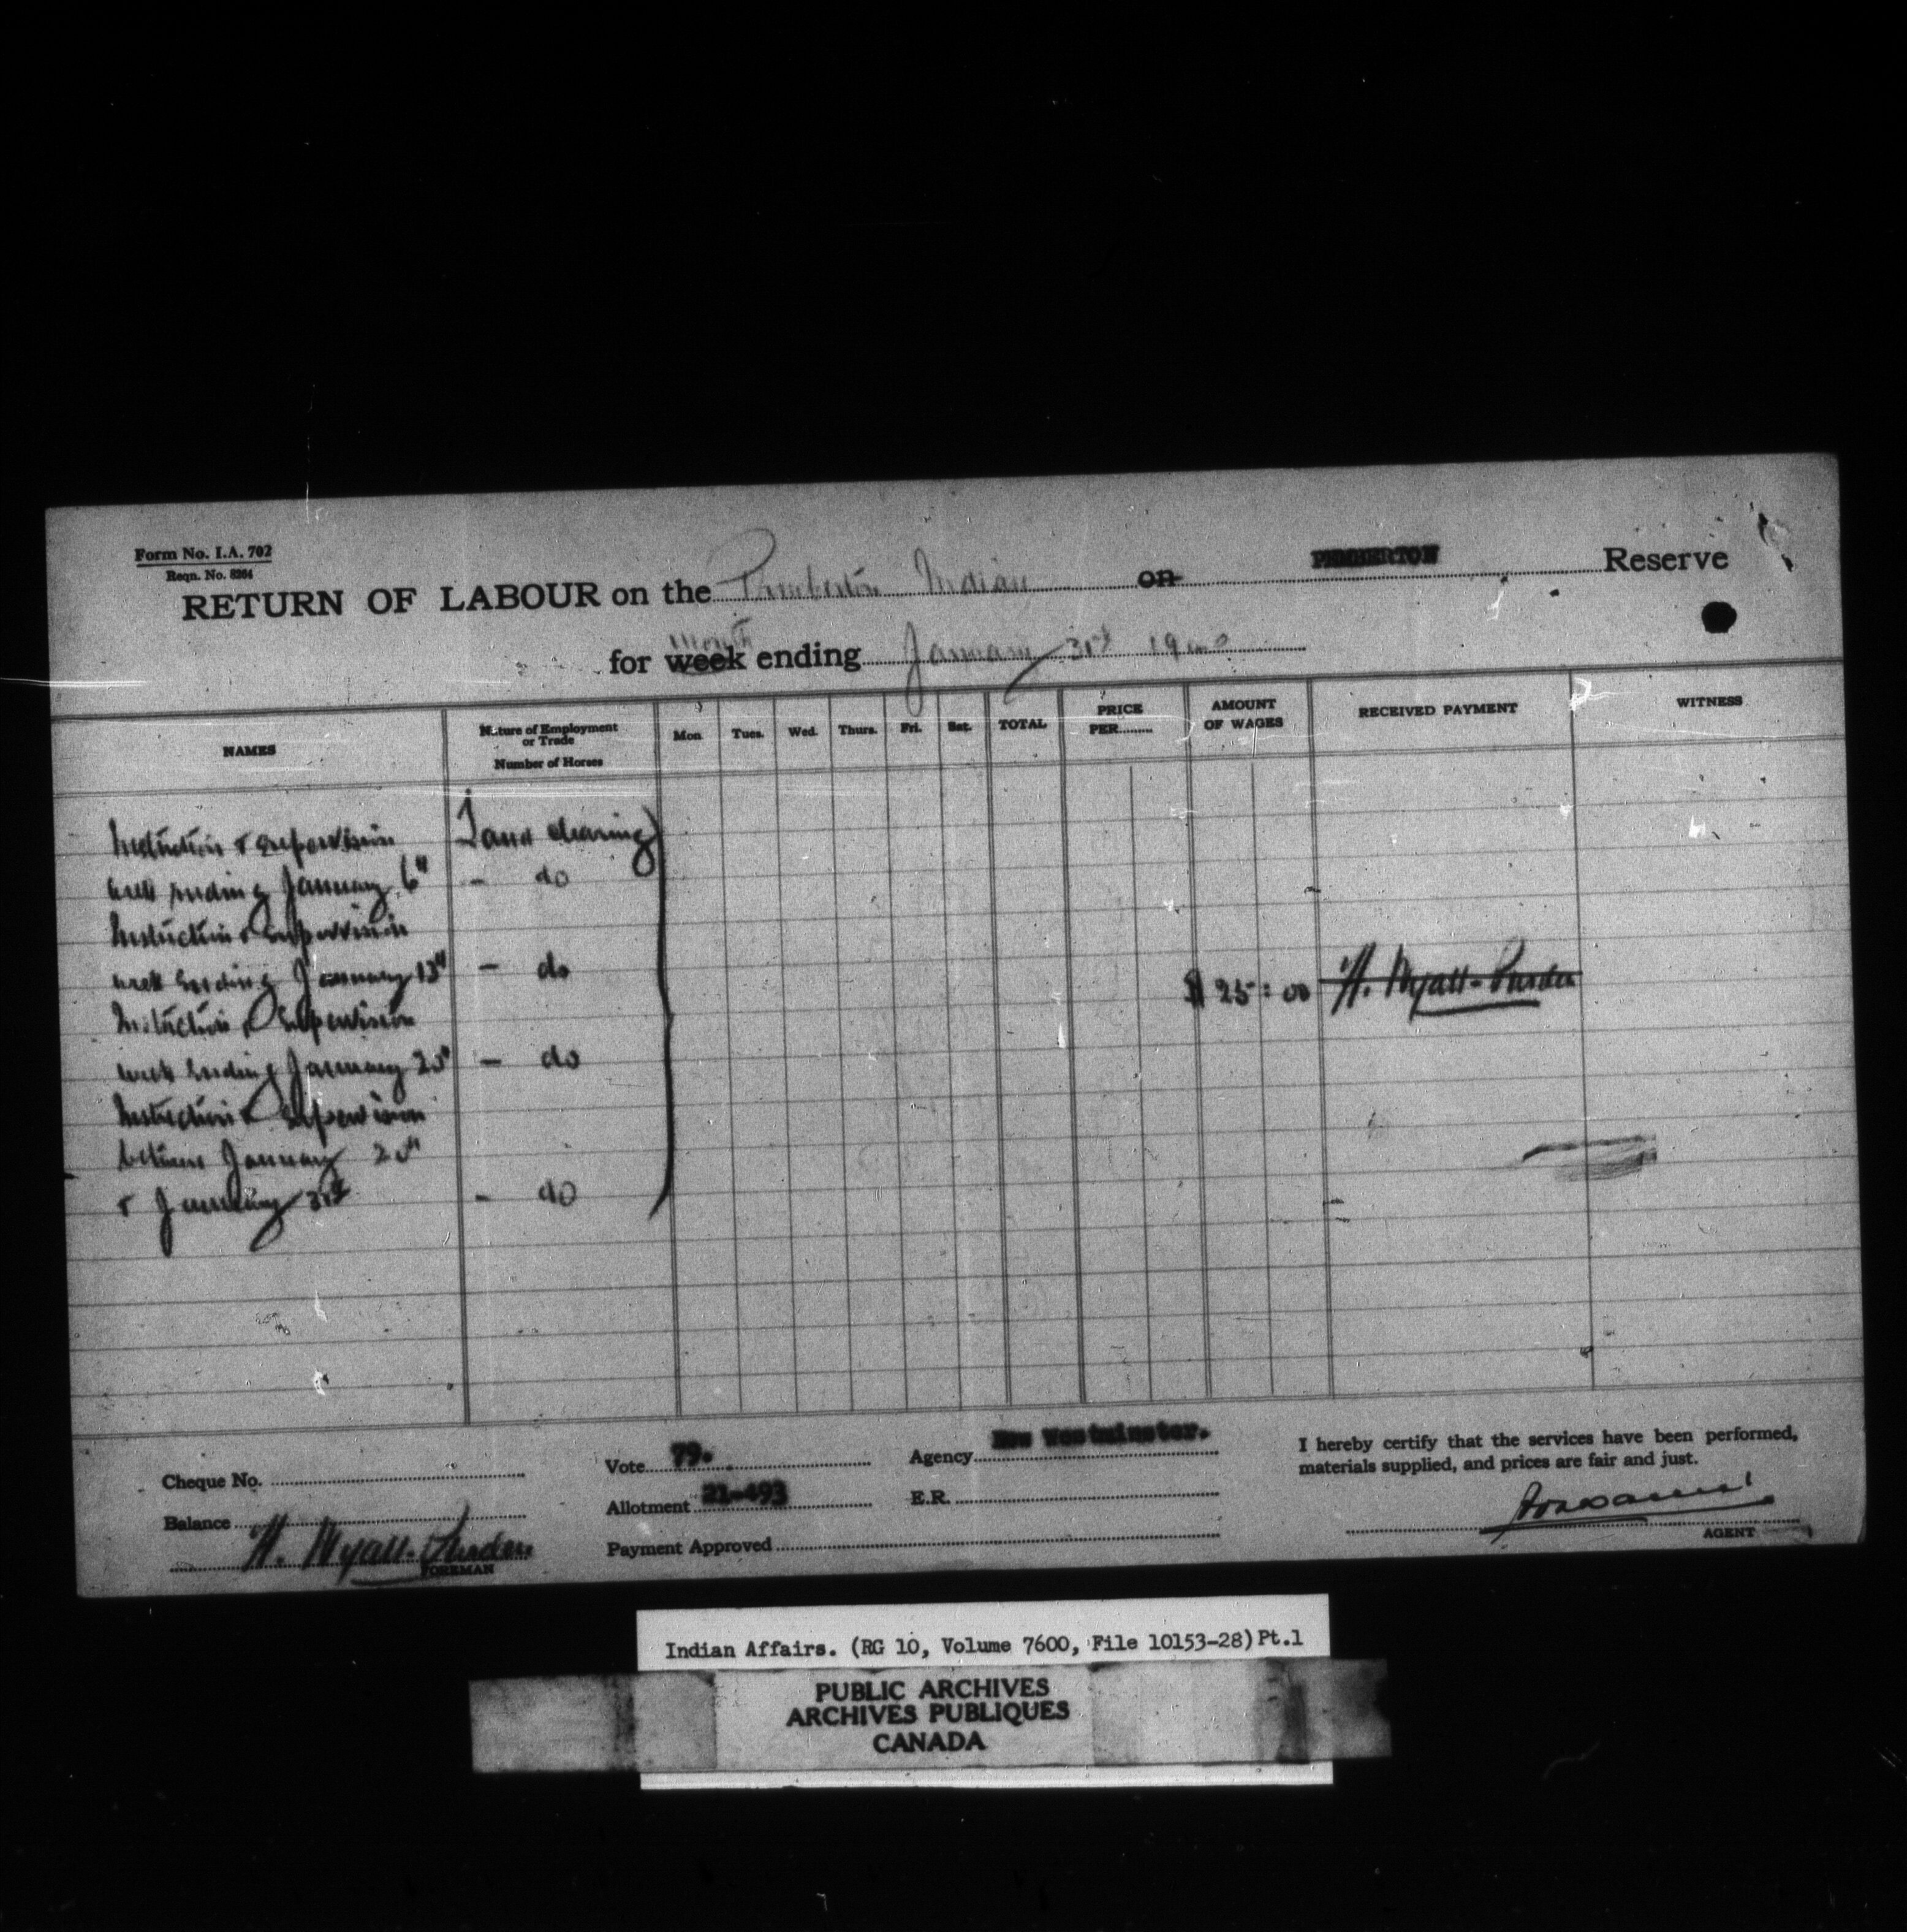 Form No. I.A. 702
Reqn. No. 8264
RETURN OF LABOUR on the Pemberton Indian on PEMBERTON Reserve
for week month ending January 31st 19
NAMES
Nature of Employment or Trade
Number of Horses
Mon.
Tues.
Wed.
Thurs.
Fri.
Sat.
TOTAL
PRICE PER
AMOUNT OF WAGES
RECEIVED PAYMENT
WITNESS
Instruction & Supervision Land clearing
week ending January 6th - do
Instruction & Supervision
week ending January 13th - do
$25:00 H. Wyatt-Purden
Instruction & Supervision
week ending January 20th - do
Instruction & Supervision
between January 20th
& January 31st - do
Cheque No.
Balance
H. Wyatt-Purden
FOREMAN
Vote 79.
Allotment 21-493
Payment Approved
Agency New Westminster.
E.R.
I hereby certify that the services have been performed,
materials supplied, and prices are fair and just.
AGENT
Indian Affairs. (RG 10, Volume 7600, File 10153-28) Pt.1
PUBLIC ARCHIVES
ARCHIVES PUBLIQUES
CANADA